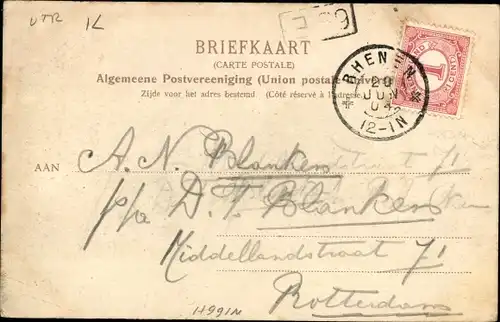 UTR IL
BRIEFKAART
(CARTE POSTALE)
Algemeene Postvereeniging (Union postale universelle)
Zijde voor het adres bestemd (Côté réservé à l'adresse)
RHENEN
20
JUN
04
12-1N
1
AAN
A. N. Blanken
p/a D. T. Blanken
Middellandstraat 71
Rotterdam
H991N